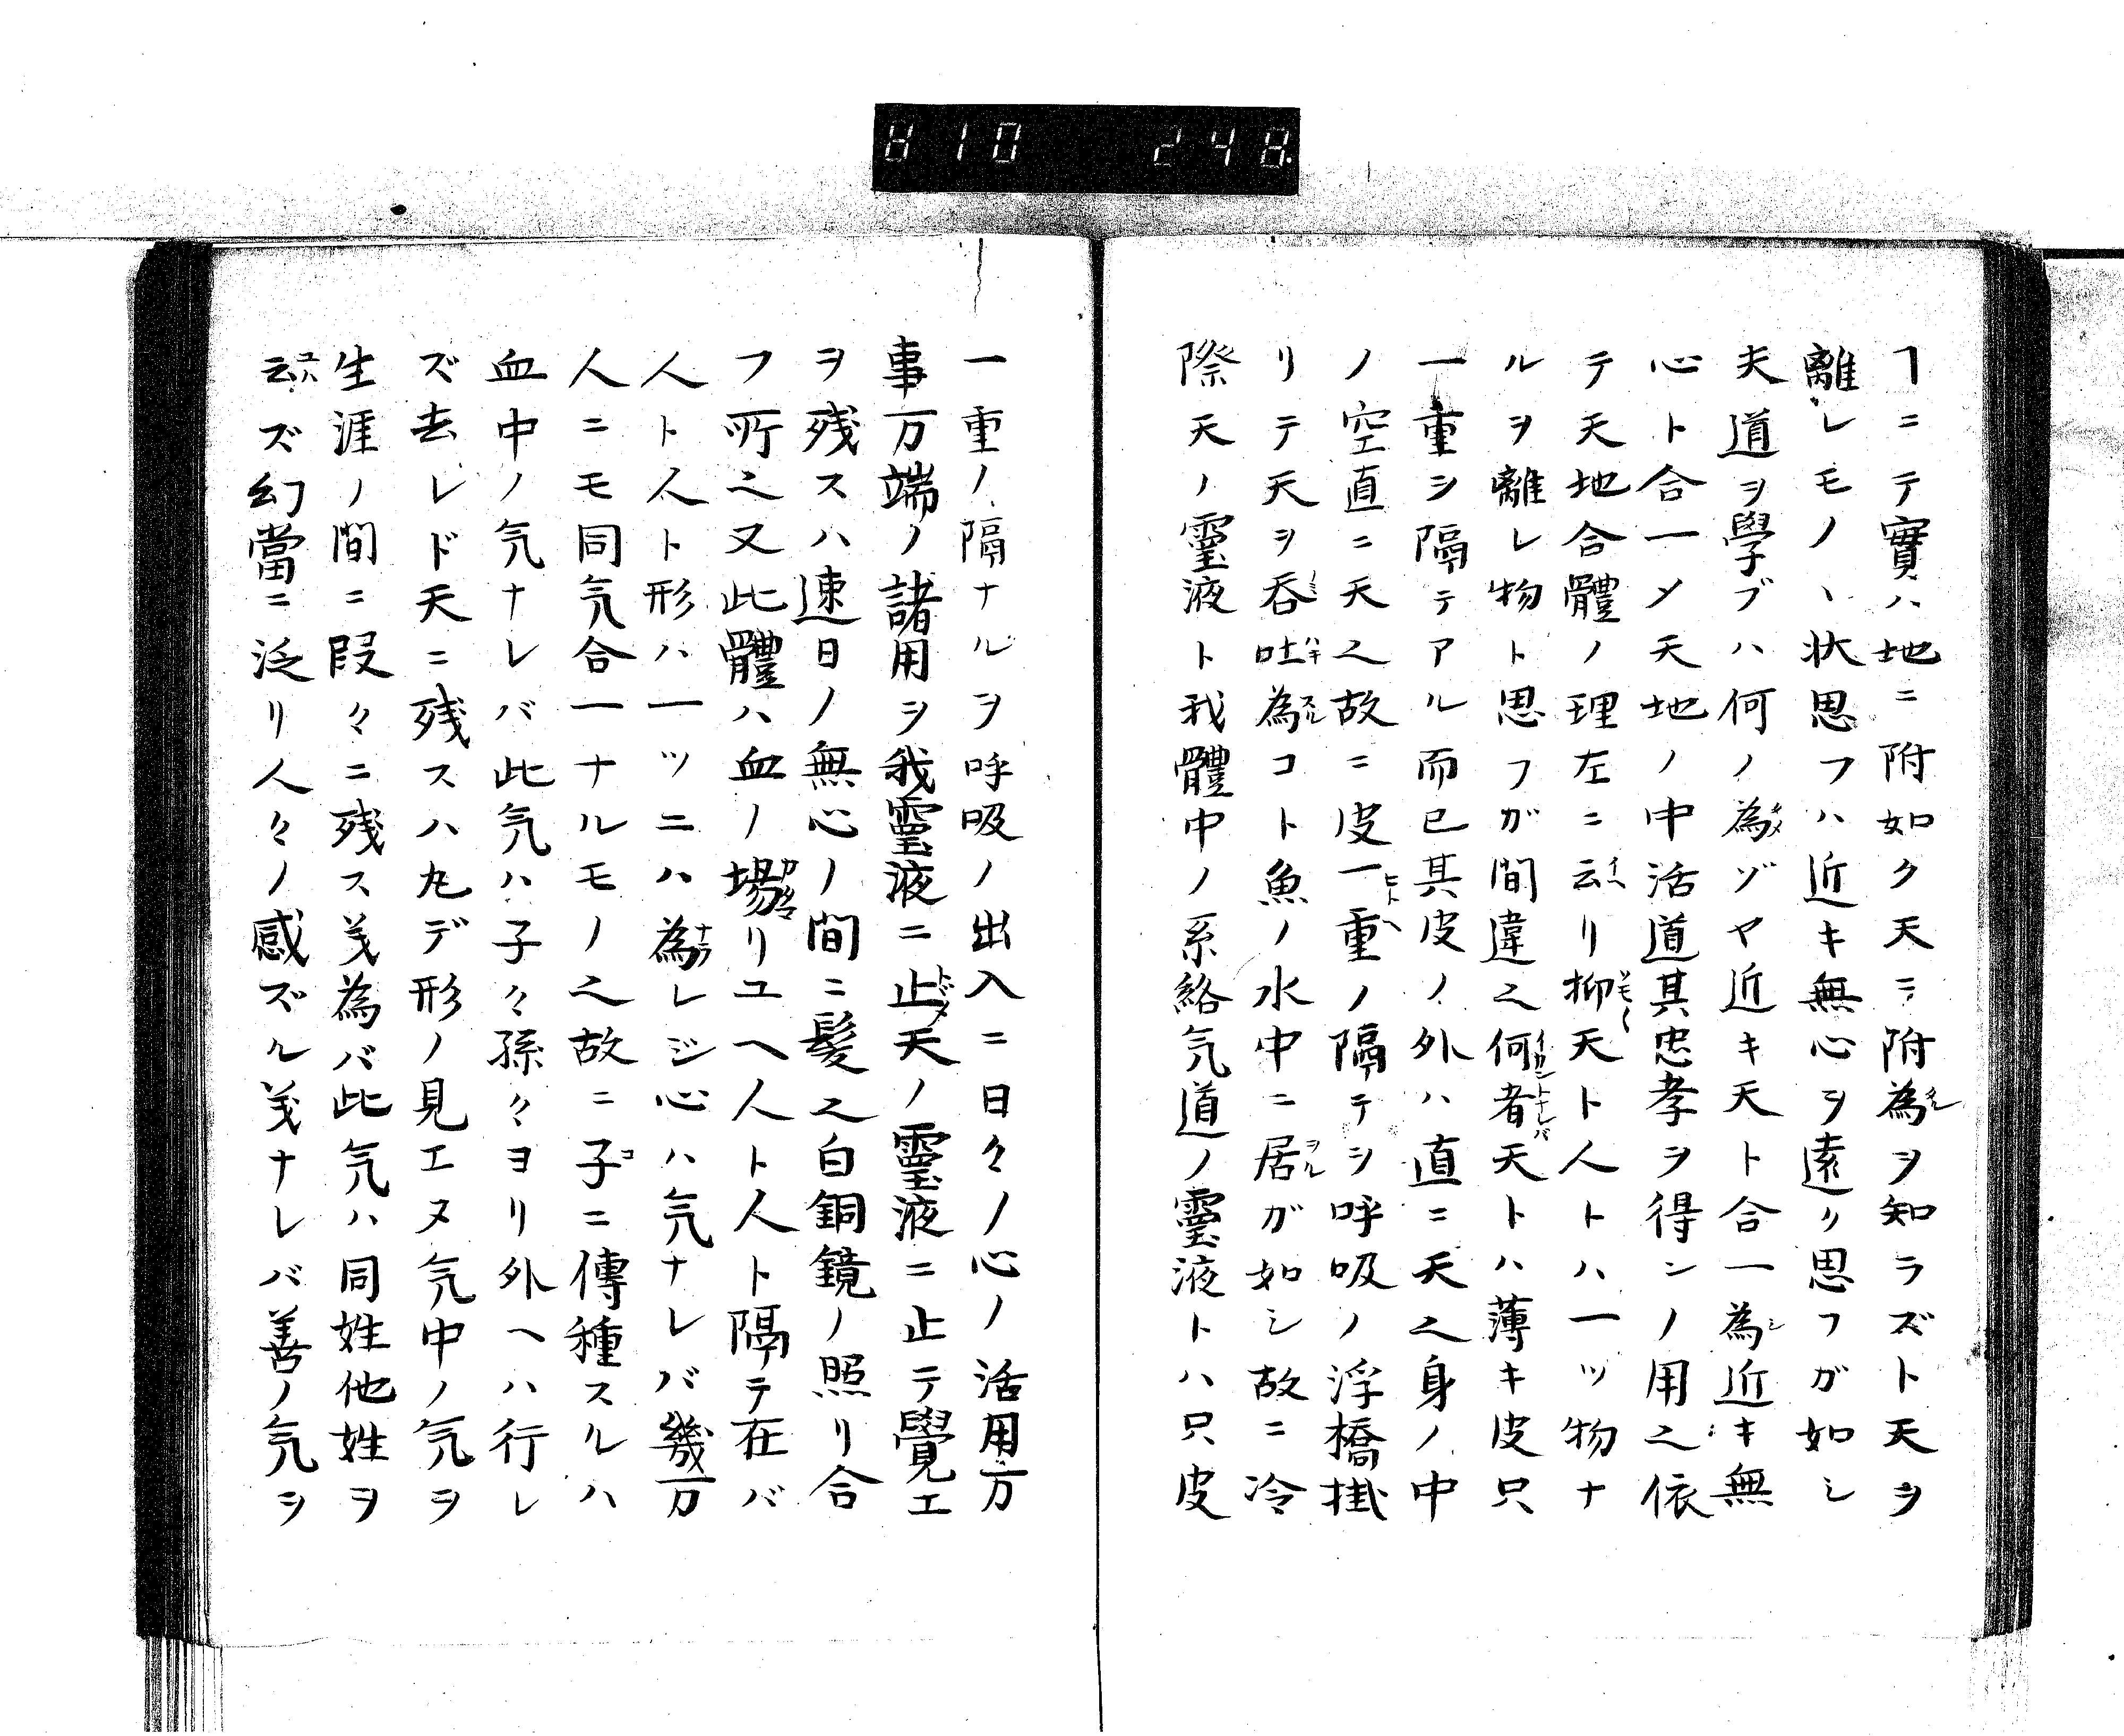 810 248.
ヿニテ實ハ地ニ附如ク天ニ附為ヲ知ラズト天ヲ
離レモノヽ状思フハ近キ無心ヲ遠リ思フガ如シ
夫道ヲ學ブハ何ノ為ゾヤ近キ天ト合一為近キ無
心ト合一〆天地ノ中活道其忠孝ヲ得ンノ用之依
テ天地合體ノ理左ニ云リ抑天ト人トハ一ツ物ナ
ルヲ離レ物ト思フガ間違之何者天トハ薄キ皮只
一重シ隔テアル而已其皮ノ外ハ直ニ天之身ノ中
ノ空直ニ天之故ニ皮一重ノ隔テシ呼吸ノ浮橋掛
リテ天ヲ呑吐為コト魚ノ水中ニ居ガ如シ故ニ冷
際天ノ靈液ト我體中ノ系絡気道ノ靈液トハ只皮
一重ノ隔ナルヲ呼吸ノ出入ニ日々ノ心ノ活用万
事万端ノ諸用ヲ我靈液ニ止天ノ靈液ニ止テ覺エ
ヲ残スハ速日ノ無心ノ間ニ髪之白銅鏡ノ照リ合
フ所之又此體ハ血ノ塲リユヘ人ト人ト隔テ在バ
人ト人ト形ハ一ツニハ為レジ心ハ気ナレバ幾万
人ニモ同気合一ナルモノ之故ニ子ニ傳種スルハ
血中ノ気ナレバ此気ハ子々孫々ヨリ外ヘハ行レ
ズ去レド天ニ残スハ丸デ形ノ見エヌ気中ノ気ヲ
生涯ノ間ニ段々ニ残ス㒵為バ此気ハ同姓他姓ヲ
云ズ幻當ニ泛リ人々ノ感ズル㒵ナレバ善ノ気ヲ